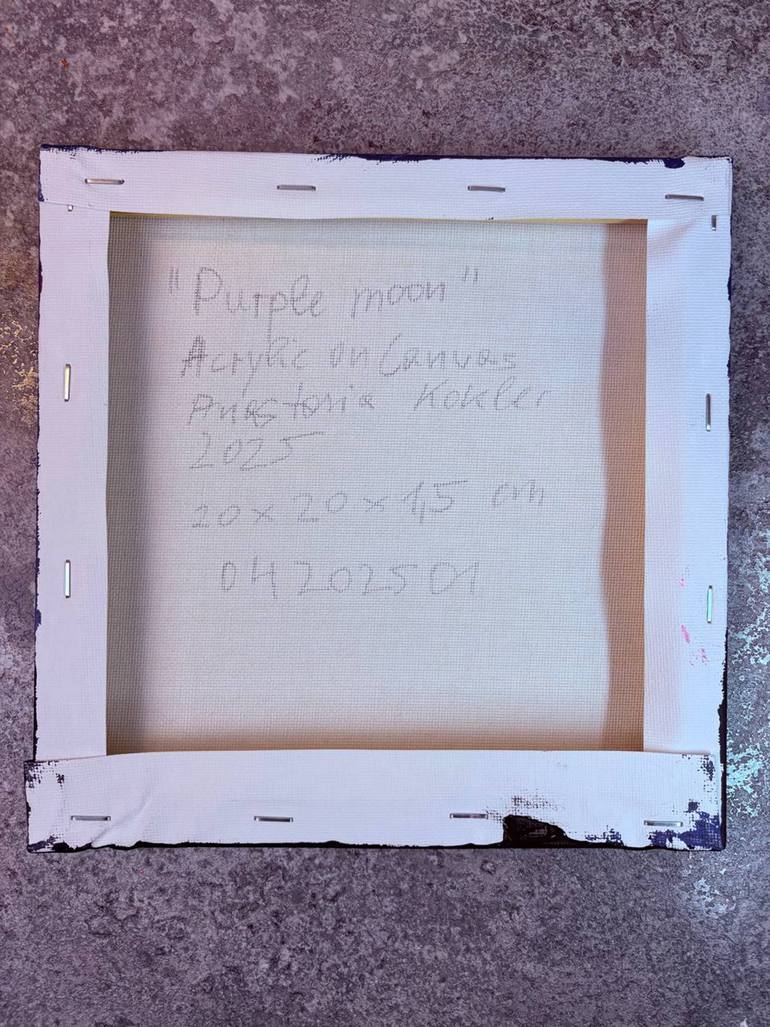 "Purple moon"
Acrylic on Canvas
Anastasia Kokler
2025
20 x 20 x 1,5 cm
04202501